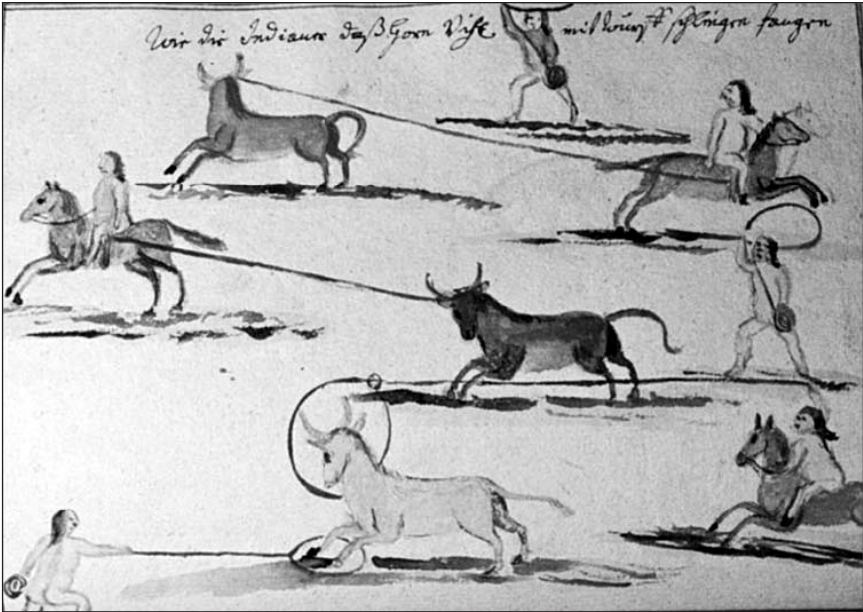 Wie die Indianer daß Horn Vihe mit Wurff schlingen fangen